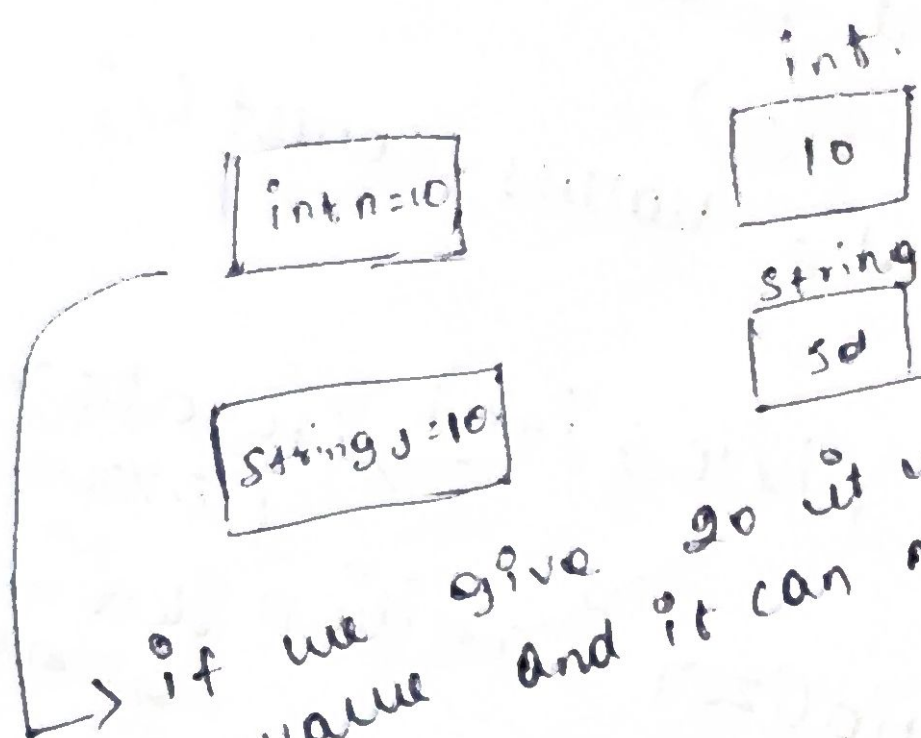 int.
int n=10
10
string
String s=10
sd
if we give 20 it
value and it can